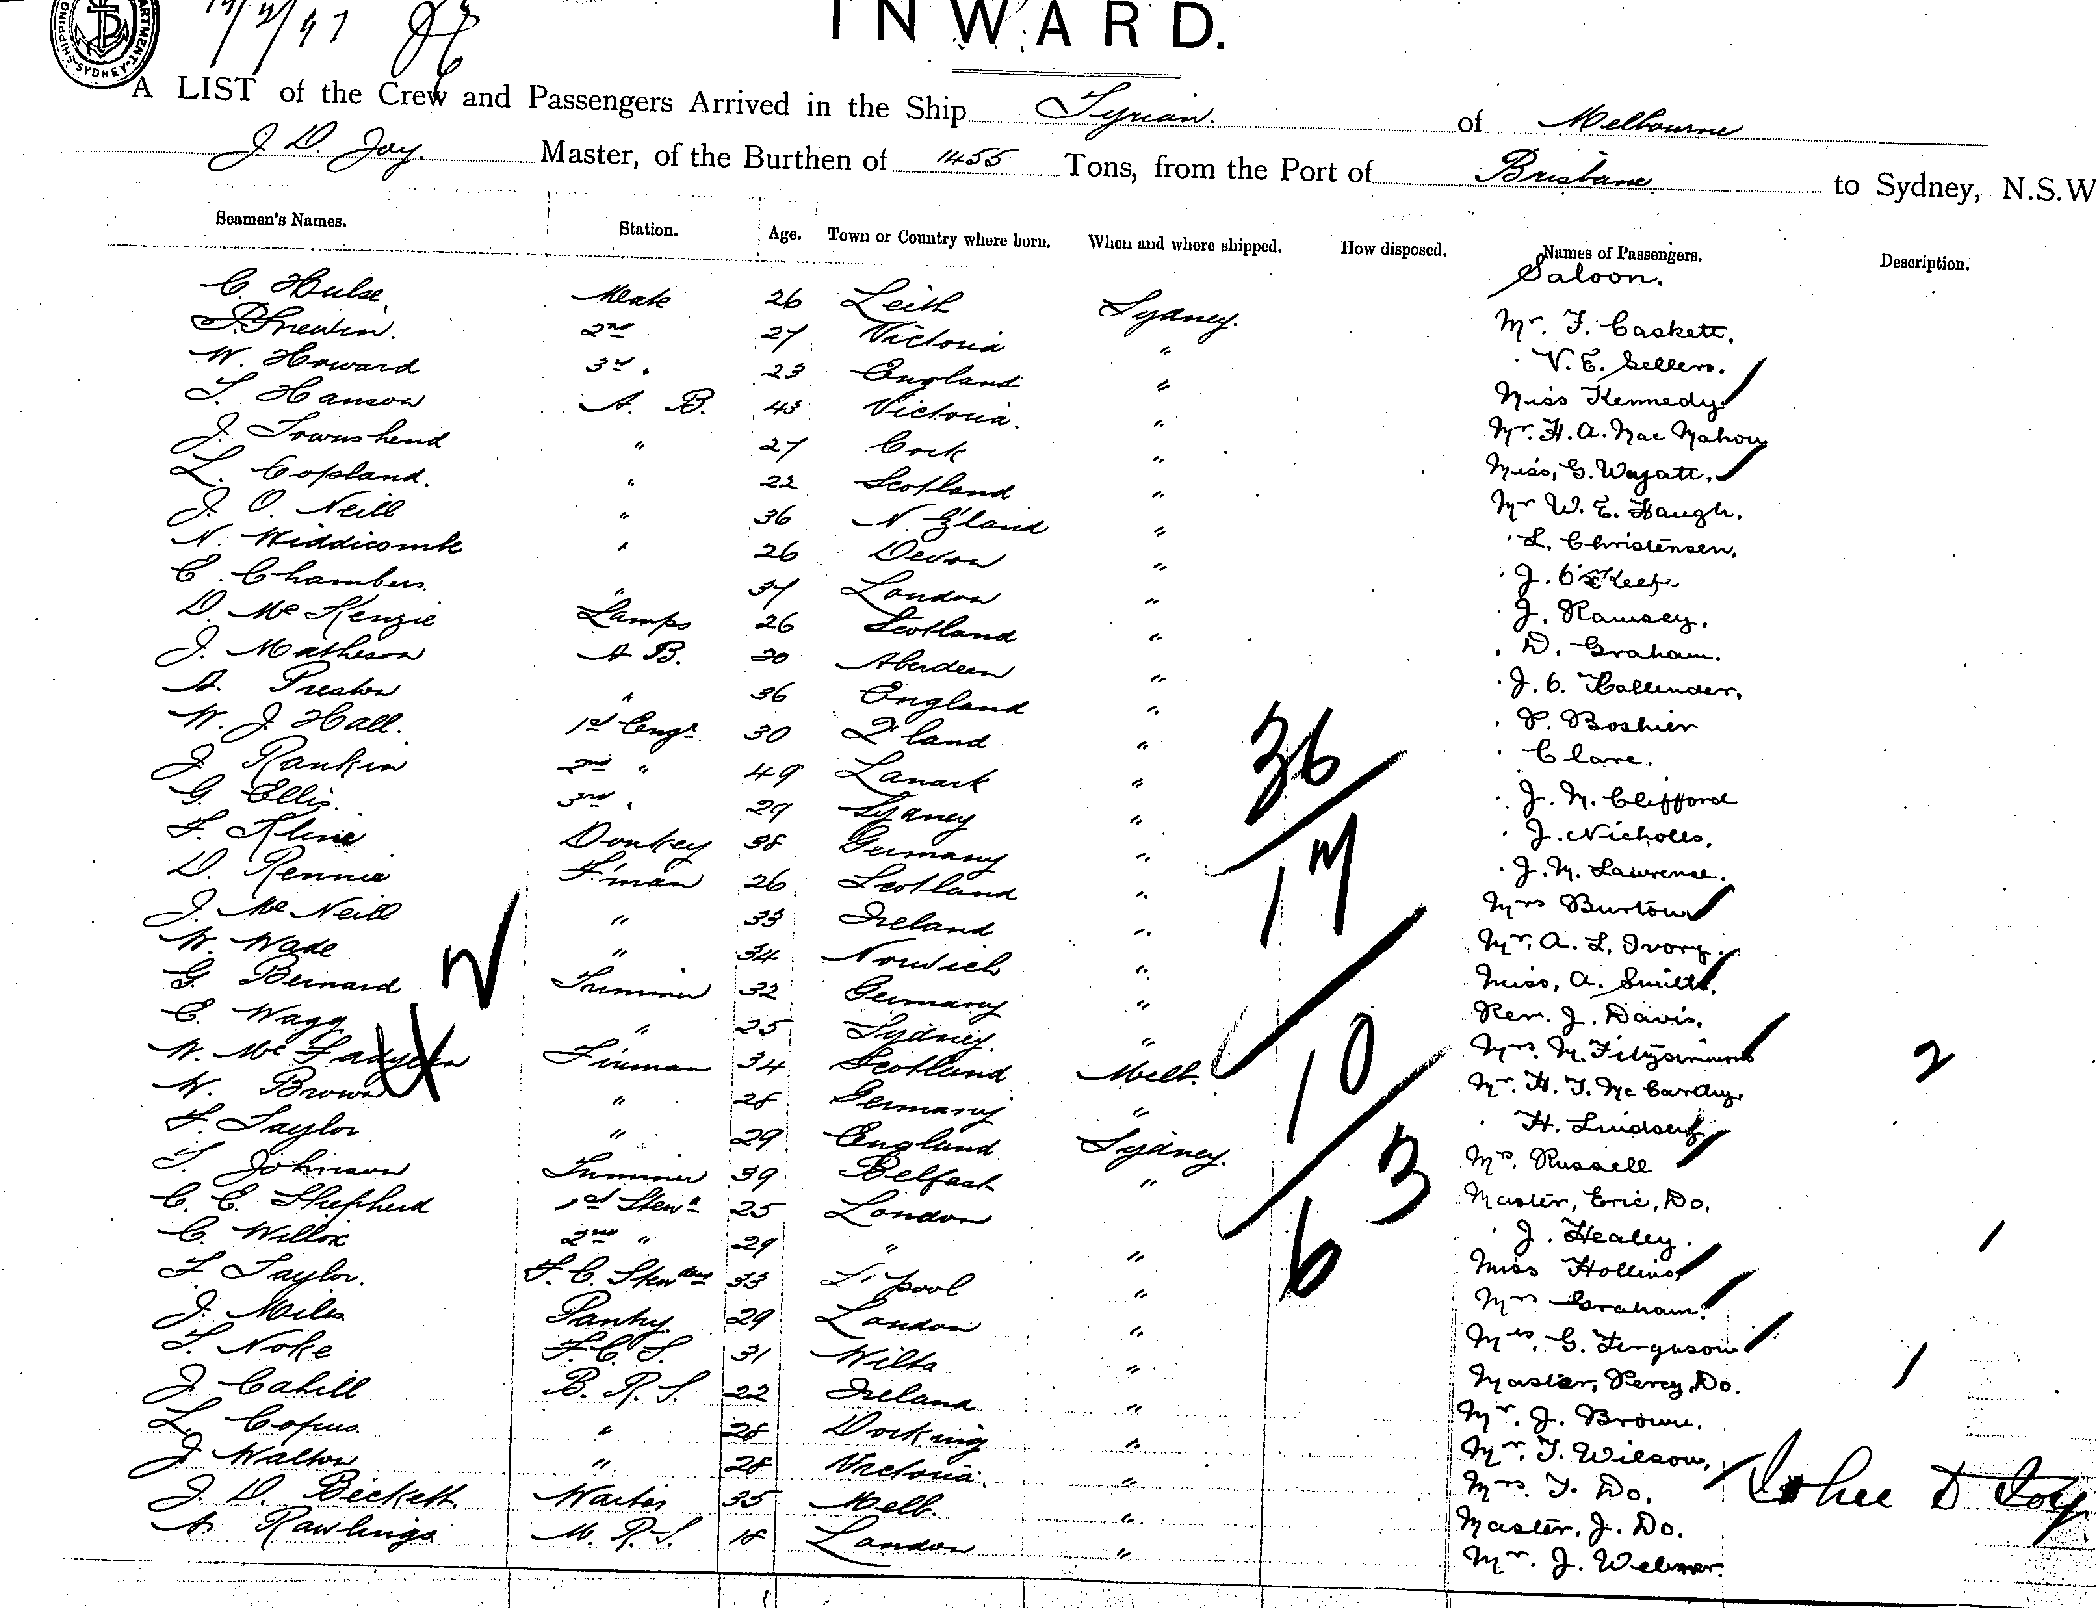 INWARD.
A LIST of the Crew and Passengers Arrived in the Ship Tyrian. of Melbourne
J D. Joy. Master, of the Burthen of 1455 Tons, from the Port of Brisbane to Sydney, N.S.W
Seamen's Names. Station. Age. Town or Country where born. When and where shipped. How disposed. Names of Passengers. Description.
Saloon.
C Hulse. Mate 26 Leith Sydney. Mr. T. Caskett.
2nd 27 Victoria " V. E. Sellers.
W. Howard 3rd. 23 England " Miss Kennedy
T. Hanson A. B. 43 Victoria. " Mr. H. A. Mac Mahon
J. Townshend " 27 Cork " Miss, G. Wyatt.
L. Copland. " 22 Scotland " Mr W. E. Haugh.
J. O. Neill " 36 N. Z'land " L. Christensen.
N. Widdicombe " 26 Devon " J. O'Keefe
C. Chambers. " 37 London " J. Ramsey.
D. McKenzie Lamps 26 Scotland " D. Graham.
J. Matheson A B. 30 Aberdeen " J. C. Hallender.
A. Preston " 36 England " P. Boshier
W. J. Hall. 1st Engr. 30 Q'land " Clare.
J Rankin 2nd " 49 Lanark " J. M. Clifford
G. Ellis. 3rd " 29 Sydney " J. Nicholls.
F. Kline Donkey 38 Germany " J. M. Lawrence.
D. Rennie F'man 26 Scotland " Mrs Burton
J. McNeill " 33 Ireland " Mr. A. L. Ivory.
W. Wade " 34 Norwich " Miss, A. Smith.
G. Bernard Trimmer 32 Germany " Rev. J. Davis.
C. Wagg " 25 Sydney. " Mrs. M. Fitzsimmons
W. McFadyen Fireman 34 Scotland Melb. Mr. H. T. McCarthy.
W. Brown " 28 Germany " H. Lindsay
F. Taylor " 29 England Sydney. Mrs. Russell
T. Johnson Trimmer 39 Belfast " Master, Eric, Do.
C. E. Shepherd 1st Stewd 25 London J. Healey.
C. Willox 2nd " 29 " " Miss Hollins
F. Taylor. F. C. Stewdess 33 L'pool " Mrs Graham.
J. Miles Pantry 29 London " Mrs. G. Ferguson
T. Noke F. C. S. 31 Wilts " Master, Percy Do.
J. Cahill B. R. S. 22 Ireland " Mr. J. Brown.
L. Copus " 28 Docking " Mr. T. Wilson.
J Walton " 28 Victoria. " Mrs. T. Do.
J. D. Beckett Waiter 35 Melb. " Master, J. Do.
A. Rawlings M. R. S. 18 London " Mr. J. Webster.
36
17
10
3
6
2
1
1
John D Joy